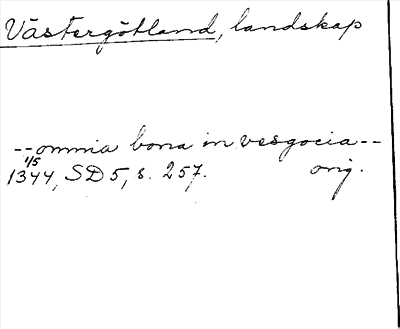 Västergötland, landskap
--omnia bona in vesgocia--
1/5
1344, SD 5, s. 257. orig.